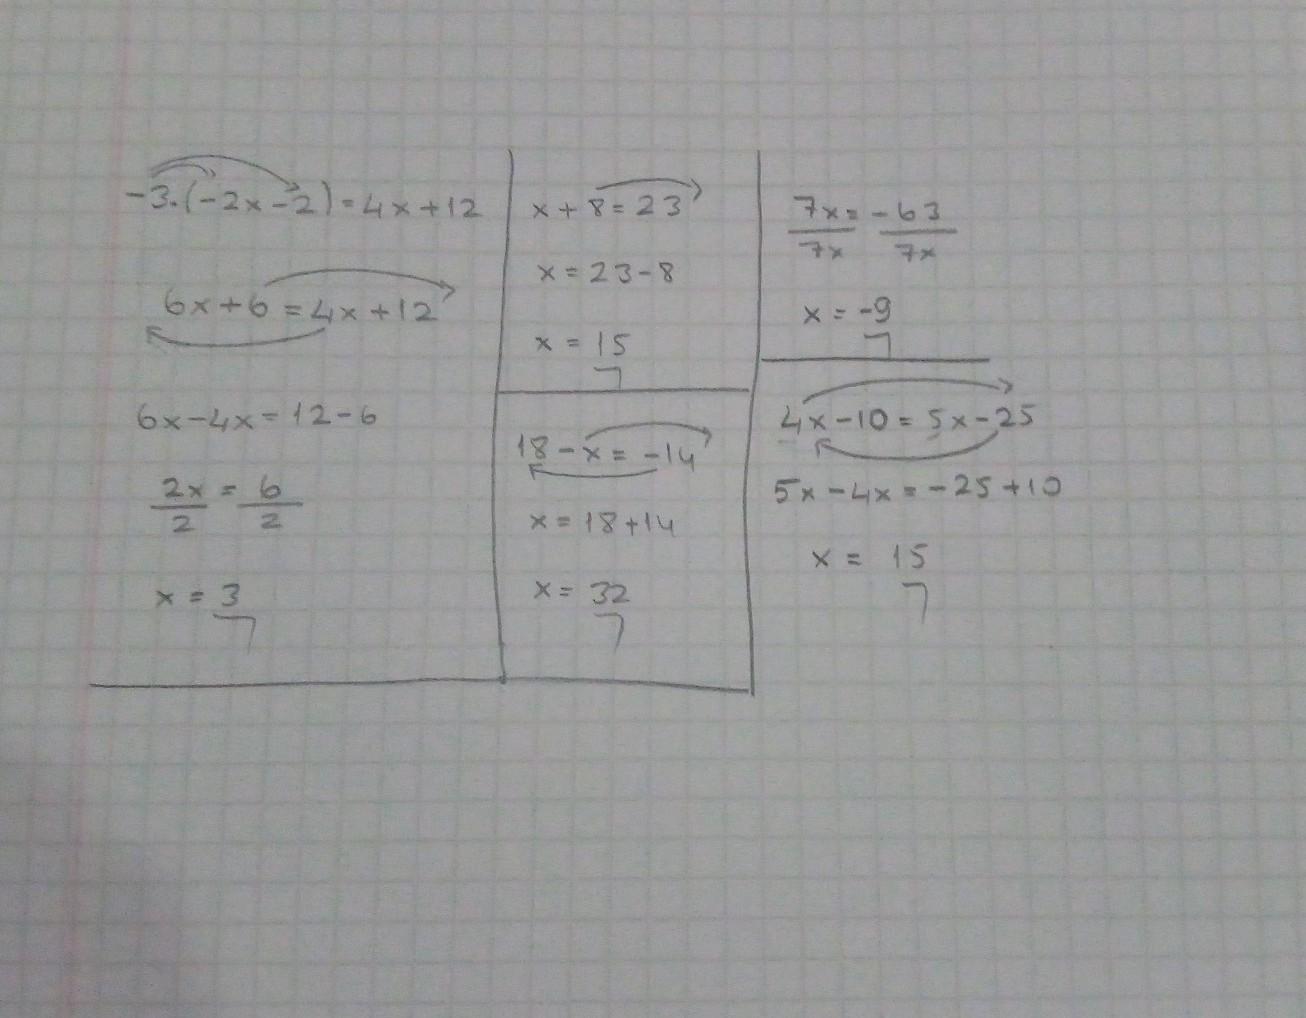 -3.(-2x-2)=4x+12
6x+6=4x+12
6x-4x=12-6
2x = 6
2 2
x = 3
x+8=23
x=23-8
x = 15
18-x=-14
x=18+14
x= 32
7x=-63
7x 7x
x=-9
4x-10=5x-25
5x-4x=-25+10
x = 15